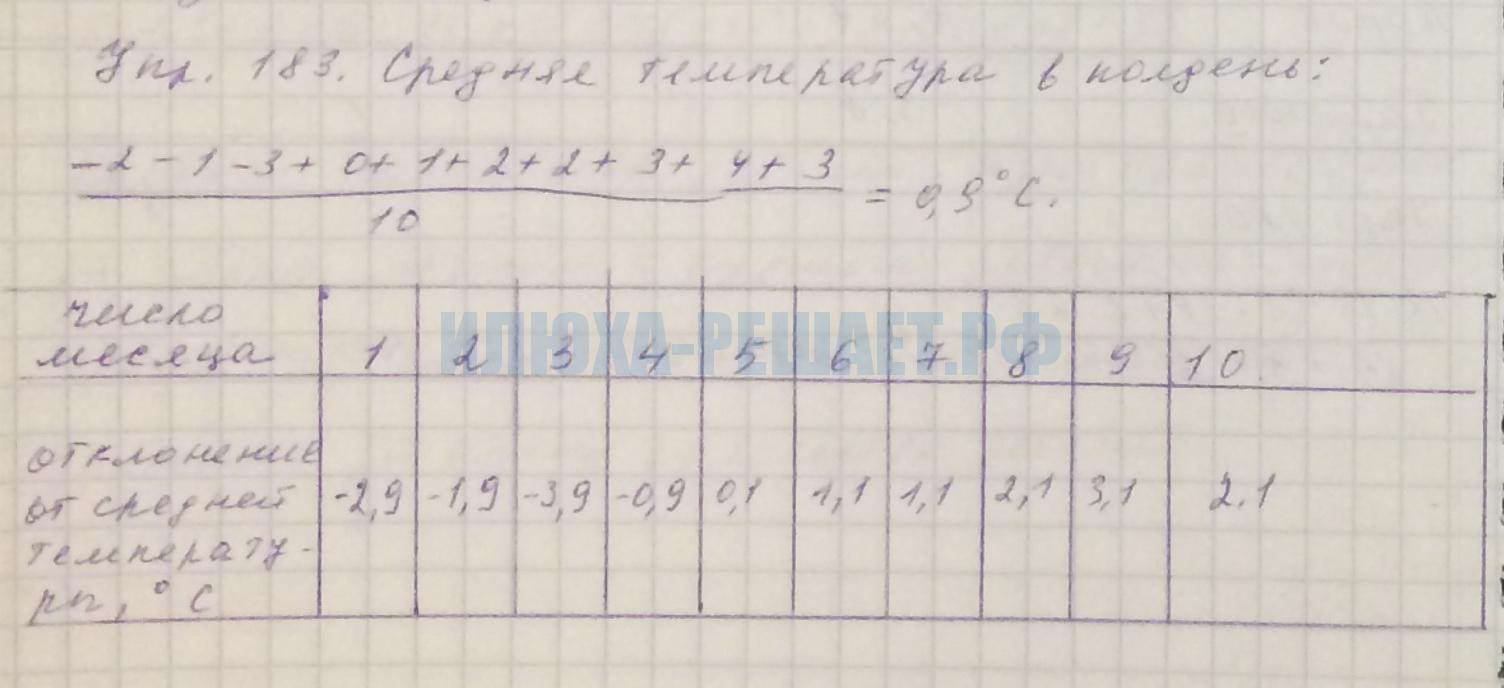 Упр. 183. Средняя температура в полдень:
-2 - 1 - 3 + 0 + 1 + 2 + 2 + 3 + 4 + 3
10
= 0,9°C.
число месяца 1 2 3 4 5 6 7 8 9 10
ИЛЮХА-РЕШАЕТ.РФ
отклонение
от средней -2,9 -1,9 -3,9 -0,9 0,1 1,1 1,1 2,1 3,1 2.1
температу-
ры, °C